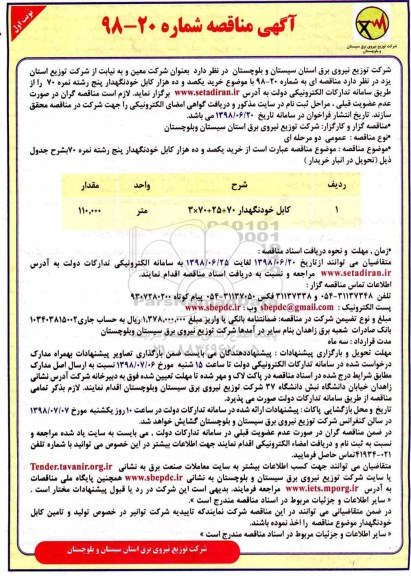 نوبت اول
آگهی مناقصه شماره ۲۰-۹۸
شرکت توزیع نیروی برق سیستان و بلوچستان
شرکت توزیع نیروی برق استان سیستان و بلوچستان در نظر دارد بعنوان شرکت معین و به نیابت از شرکت توزیع استان
یزد در نظر دارد مناقصه ای به شماره ۲۰-۹۸ با موضوع خرید یکصد و ده هزار کابل خودنگهدار پنج رشته نمره ۷۰ را از
طریق سامانه تدارکات الکترونیکی دولت به آدرس www.setadiran.ir برگزار نمایند. لازم است مناقصه گران در صورت
عدم عضویت قبلی , مراحل ثبت نام در سایت مذکور و دریافت گواهی امضای الکترونیکی را جهت شرکت در مناقصه محقق
سازند. تاریخ انتشار فراخوان در سامانه تاریخ ۱۳۹۸/۰۶/۲۰ می باشد.
*مناقصه گزار و کارگزار: شرکت توزیع نیروی برق استان سیستان وبلوچستان
*نوع مناقصه : عمومی دو مرحله ای
*موضوع مناقصه : موضوع مناقصه عبارت است از خرید یکصد و ده هزار کابل خودنگهدار پنج رشته نمره ۷۰بشرح جدول
ذیل (تحویل در انبار خریدار )
ردیف شرح واحد مقدار
۱ کابل خودنگهدار ۷۰+۲۵+۷۰×۳ متر ۱۱۰.۰۰۰
*زمان , مهلت و نحوه دریافت اسناد مناقصه :
متقاضیان می توانند ازتاریخ ۱۳۹۸/۰۶/۲۰ لغایت ۱۳۹۸/۰۶/۲۵ به سامانه الکترونیکی تدارکات دولت به آدرس
www.setadiran.ir مراجعه و نسبت به دریافت اسناد مناقصه اقدام نمایند.
اطلاعات تماس مناقصه گزار :
تلفن ۳۱۱۳۷۳۴۸-۰۵۴ و ۳۱۱۳۷۳۳۸ فکس ۳۱۱۳۷۰۵۰-۰۵۴ پیام کوتاه ۹۳۰۷۲۸۰۲۰۰
پست الکترونیک : sbepdc@gmail.com وب : www.sbepdc.ir
مبلغ و نوع تضمین شرکت در مناقصه: ضمانتنامه بانکی یا واریز مبلغ ۱.۳۷۸.۰۰۰.۰۰۰ ریال به حساب جاری۱۰۳۴۰۳۸۱۵۰۰۲
بانک صادرات شعبه برق زاهدان بنام سایر در آمدها شرکت توزیع نیروی برق سیستان وبلوچستان
مدت قرارداد : سه ماه
مهلت تحویل و بارگزاری پیشنهادات : پیشنهاددهندگان می بایست ضمن بارگذاری تصاویر پیشنهادات بهمراه مدارک
درخواست شده در سامانه تدارکات الکترونیکی دولت تا ساعت ۱۵ شنبه مورخ ۱۳۹۸/۰۷/۰۶ نسبت به ارسال اصل مدارک
مطابق شرایط درج شده در اسناد مناقصه در پاکت لاک و مهر شده تا مهلت تعیین شده فوق به دبیرخانه شرکت آدرس نشانی
زاهدان خیابان دانشگاه نبش دانشگاه ۳۷ شرکت توزیع نیروی برق استان سیستان وبلوچستان اقدام نمایند. لازم بذکر تمامی
مناقصه از طریق سامانه تدارکات دولت صورت می پذیرد.
تاریخ و محل بازگشایی پاکات : پیشنهادات ارائه شده در سامانه تدارکات دولت در ساعت ۱۰ روز یکشنبه مورخ ۱۳۹۸/۰۷/۰۷
در سالن کنفرانس شرکت توزیع نیروی برق سیستان و بلوچستان گشایش خواهد شد.
در ضمن مناقصه گران در صورت عدم عضویت قبلی در سامانه تدارکات دولت , می بایست به سایت یاد شده مراجعه و
نسبت به ثبت نام و دریافت امضاء الکترونیکی اقدام نمایند جهت اطلاعات بیشتر در این خصوص می توانید با شماره تلفن
۰۲۱-۴۱۹۳۴تماس حاصل فرمایید.
متقاضیان می توانند جهت کسب اطلاعات بیشتر به سایت معاملات صنعت برق به نشانی Tender.tavanir.org.ir
یا سایت شرکت توزیع نیروی برق سیستان و بلوچستان به نشانی www.sbepdc.ir همچنین پایگاه ملی مناقصات
به آدرس www.iets.mporg.ir مراجعه فرمایند. بدیهی است این شرکت در رد یا قبول پیشنهادات مختار است .
« سایر اطلاعات و جزئیات مربوط در اسناد مناقصه مندرج است »
در ضمن متقاضیانی می توانند در این مناقصه شرکت نمایندکه تاییدیه شرکت توانیر در خصوص تولید و تامین کابل
خودنگهدار موضوع مناقصه را اخذ نموده باشند.
« سایر اطلاعات و جزئیات مربوط در اسناد مناقصه مندرج است »
شرکت توزیع نیروی برق استان سیستان و بلوچستان